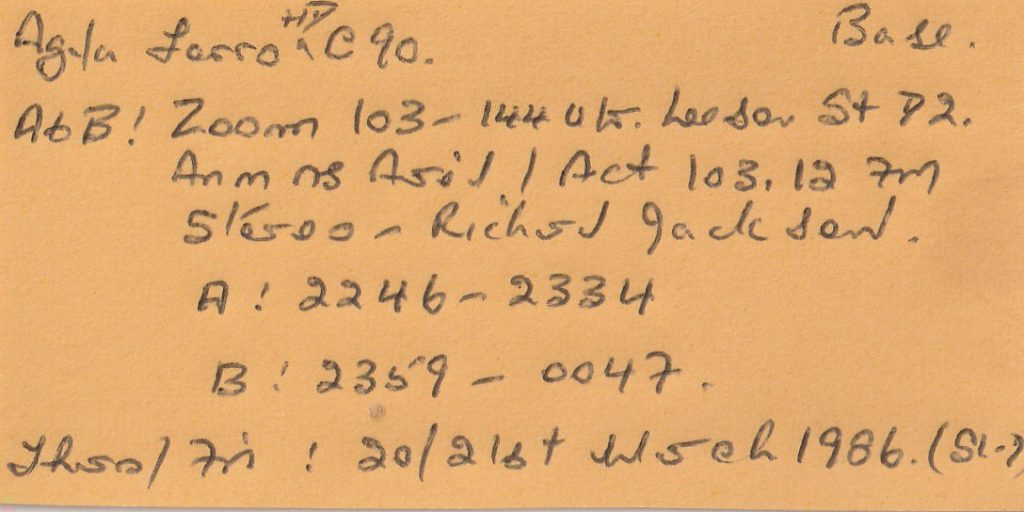 Agfa Ferro HD C90. Base.
A+B! Zoom 103-144 Leeson St D2.
Anm ns April / Act 103.12 FM
Stereo - Richard Jackson.
A: 2246-2334
B: 2359-0047.
Thurs/Fri: 20/21st March 1986.